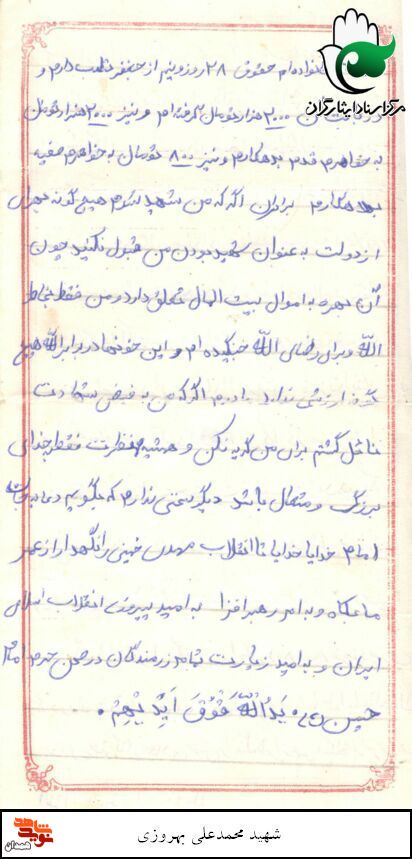 مرکز اسناد ایثارگران
خانواده ام حقوق ۲۸ روز و نیم از جعفر طلب دارم و
۲۰۰۰ هزار تومان گرفته ام و نیز ۲۰۰۰ هزار تومان
به خواهرم قدم بدهکارم و نیز ۸۰۰ تومان به خواهرم صفیه
بدهکارم برادران اگر که من شهید شوم هیچ گونه
از دولت به عنوان شهید بودن من قبول نکنید چون
آن بهره به اموال بیت المال تعلق دارد و من فقط بخاطر
الله و برای رضای الله جنگیده ام و این خونها در برابر الله هیچ
گونه ارزشی ندارد مادرم اگر که من به فیض شهادت
نائل گشتم برای من گریه نکن و همیشه نظرت فقط بخدای
بزرگ و متعال باشد دیگر سخنی ندارم که بگویم
امام خدایا خدایا تا انقلاب مهدی خمینی را نگهدار از عمر
ما بکاه و به عمر رهبر افزا به امید پیروزی انقلاب اسلامی
ایران و به امید زیارت تمام رزمندگان در صحن حرم امام
حسین (ع) یَدُاللهِ فَوْقَ اَیْدیهِمْ
شهید محمدعلی بهروزی
نوید شاهد
همدان